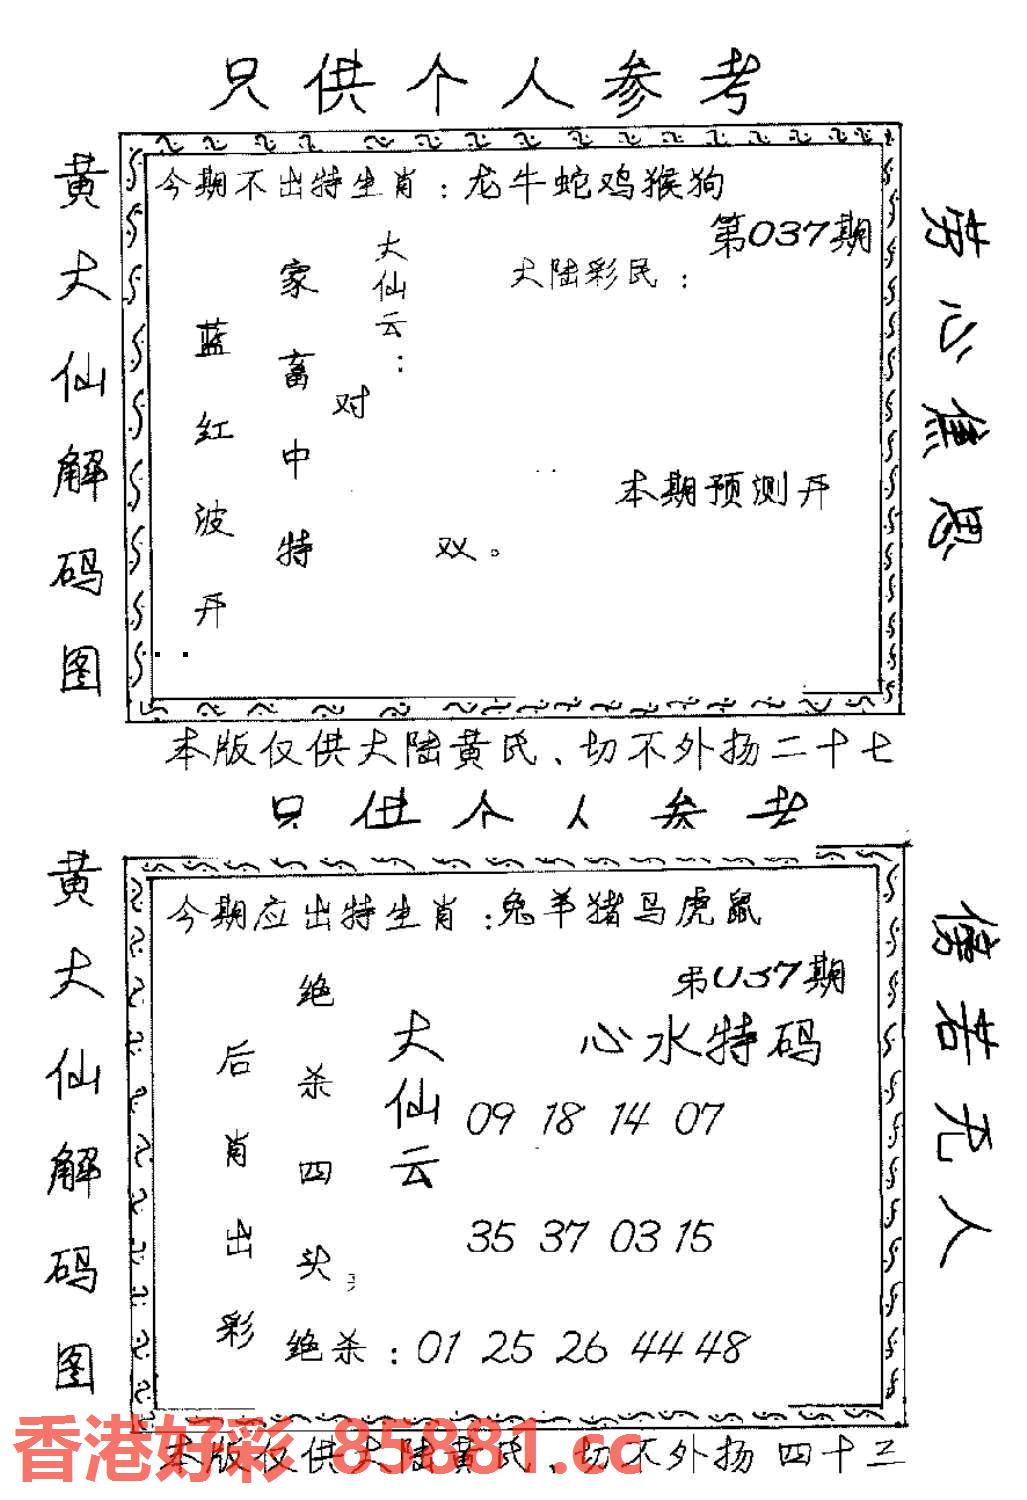 只供个人参考
黄大仙解码图
今期不出特生肖：龙牛蛇鸡猴狗
第037期
大仙云：
大陆彩民：
家畜中特
对
蓝红波开
双。
本期预测开
劳心焦思
本版仅供大陆黄氏、切不外扬二十七
只供个人参考
黄大仙解码图
今期应出特生肖：兔羊猪马虎鼠
第037期
绝杀四头
后肖出彩
大仙云
心水特码
09 18 14 07
35 37 03 15
绝杀：01 25 26 44 48
傍若无人
本版仅供大陆黄氏、切不外扬四十三
香港好彩 85881.cc